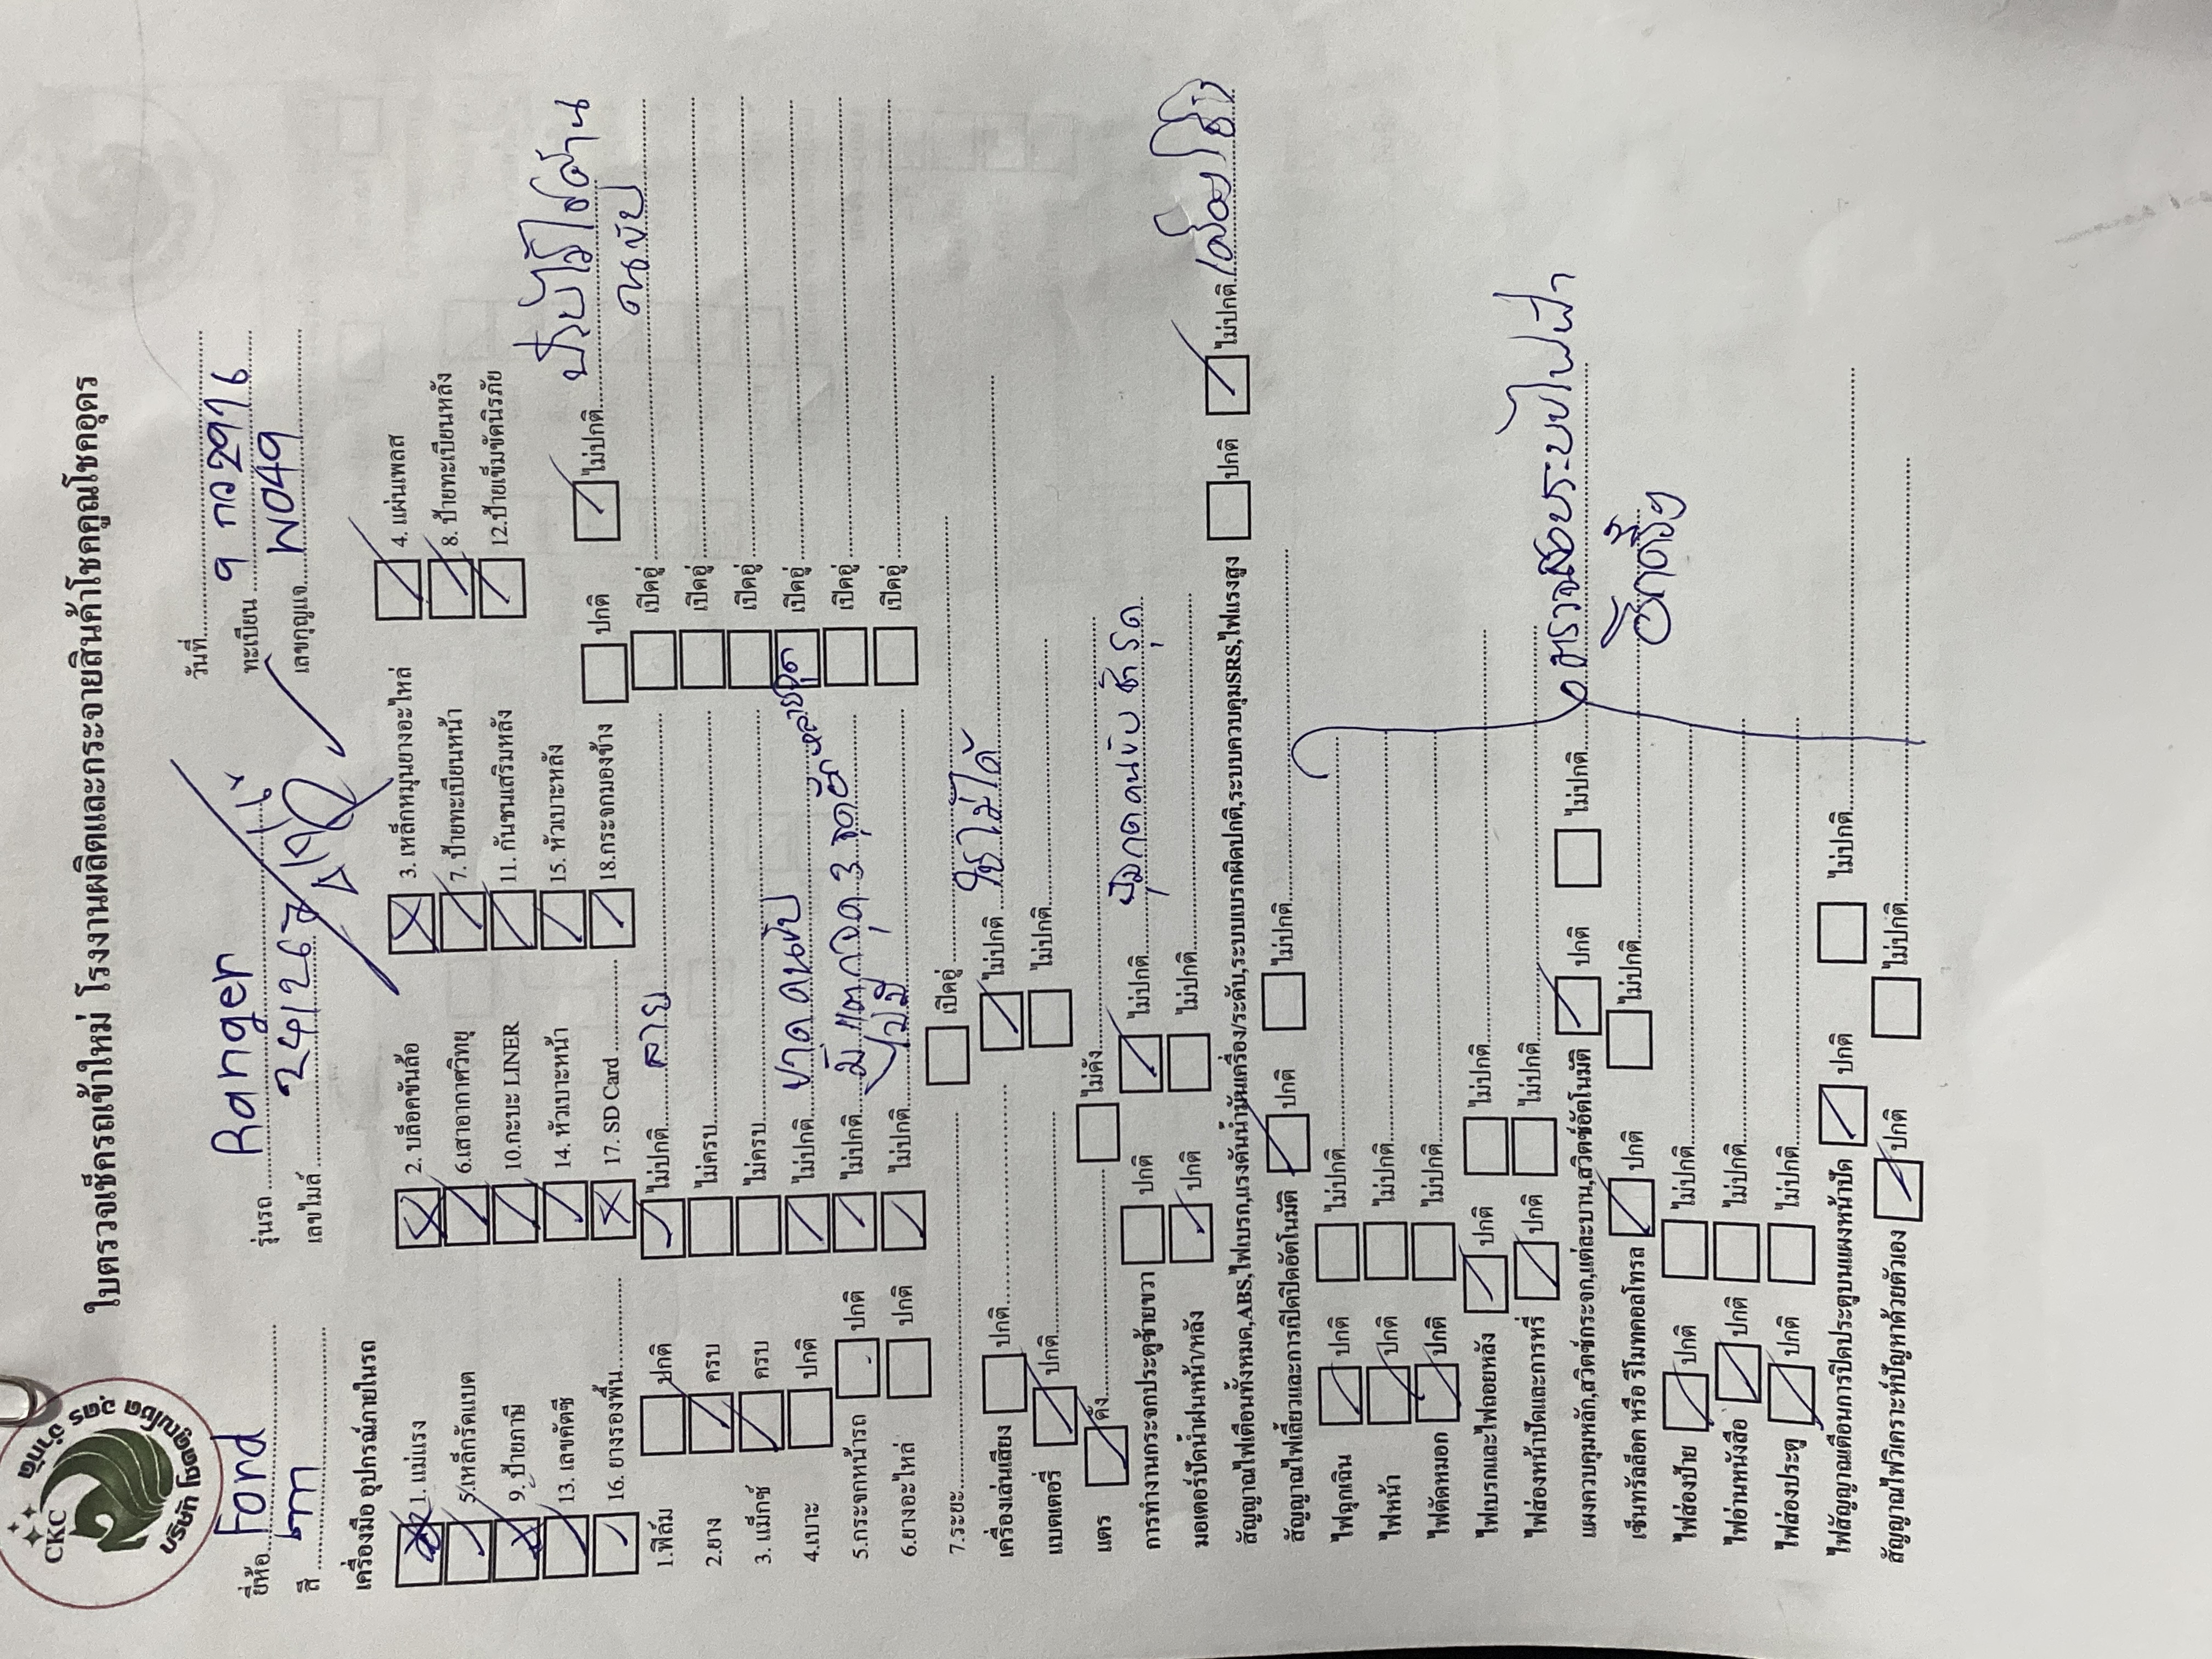 CKC
บริษัท โชคคูณโชค อุดร จำกัด
ใบตรวจเช็ครถเข้าใหม่ โรงงานผลิตและกระจายสินค้าโชคคูณโชคอุดร
วันที่
ยี่ห้อ Ford รุ่นรถ Ranger ทะเบียน 9 กว 2916
สี เทา เลขไมล์ 241267 เลขกุญแจ W049
เครื่องมือ อุปกรณ์ภายในรถ
1. แม่แรง 2. บล็อคขันล้อ 3. เหล็กหมุนยางอะไหล่ 4. แผ่นเพลส
5.เหล็กรัดแบต 6.เสาอากาศวิทยุ 7. ป้ายทะเบียนหน้า 8. ป้ายทะเบียนหลัง
9. ป้ายภาษี 10.กะบะ LINER 11. กันชนเสริมหลัง 12.ป้ายเข็มขัดนิรภัย
13. เลขคัดซี 14. หัวเบาะหน้า 15. หัวเบาะหลัง
16. ยางรองพื้น 17. SD Card 18.กระจกมองข้าง ปกติ ไม่ปกติ
คนขับ
1.ฟิล์ม ปกติ ไม่ปกติ ลาย เปิดอู่
2.ยาง ครบ ไม่ครบ เปิดอู่
3. แม็กซ์ ครบ ไม่ครบ เปิดอู่
4.เบาะ ปกติ ไม่ปกติ ขาด คนขับ เปิดอู่
5.กระจกหน้ารถ ปกติ ไม่ปกติ มีแตกจุด 3 จุด เปิดอู่
6.ยางอะไหล่ ปกติ ไม่ปกติ ไม่มี เปิดอู่
7.ระยะ เปิดอู่
เครื่องเล่นเสียง ปกติ ไม่ปกติ ใช้ไม่ได้
แบตเตอรี่ ปกติ ไม่ปกติ
แตร ดัง ไม่ดัง
การทำงานกระจกประตูซ้ายขวา ปกติ ไม่ปกติ ปุ่มกดคนขับ ชำรุด
มอเตอร์ปัดน้ำฝนหน้า/หลัง ปกติ ไม่ปกติ
สัญญาณไฟเตือนทั้งหมด,ABS,ไฟเบรก,แรงดันน้ำมันเครื่อง/ระดับ,ระบบเบรกผิดปกติ,ระบบควบคุมSRS,ไฟแรงสูง ปกติ ไม่ปกติ
สัญญาณไฟเลี้ยวและการเปิดปิดอัตโนมัติ ปกติ ไม่ปกติ
ไฟฉุกเฉิน ปกติ ไม่ปกติ
ไฟหน้า ปกติ ไม่ปกติ
ไฟตัดหมอก ปกติ ไม่ปกติ
ไฟเบรกและไฟถอยหลัง ปกติ ไม่ปกติ
ไฟส่องหน้าปัดและการหรี่ ปกติ ไม่ปกติ
แผงควบคุมหลัก,สวิตช์กระจก,แต่ละบาน,สวิตซ์อัตโนมัติ ปกติ ไม่ปกติ ตรวจสอบระบบไฟฟ้า
เซ็นทรัลล็อค หรือ รีโมทคอลโทรล ปกติ ไม่ปกติ อีกครั้ง
ไฟส่องป้าย ปกติ ไม่ปกติ
ไฟอ่านหนังสือ ปกติ ไม่ปกติ
ไฟส่องประตู ปกติ ไม่ปกติ
ไฟสัญญาณเตือนการปิดประตูบนแผงหน้าปัด ปกติ ไม่ปกติ
สัญญาณไฟวิเคราะห์ปัญหาด้วยตัวเอง ปกติ ไม่ปกติ